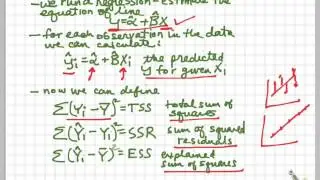 - we run a regression = estimate the
equation of line
y = α + βX ✓
- for each observation in the data
we can calculate:
ŷᵢ = α̂ + β̂Xᵢ the predicted
y for given Xᵢ
- now we can define
∑(Yᵢ-Ȳ)² = TSS total sum of
squares
∑(Ŷᵢ-Yᵢ)² = SSR sum of squared
residuals
∑(Ŷᵢ-Ȳ)² = ESS explained
sum of squares